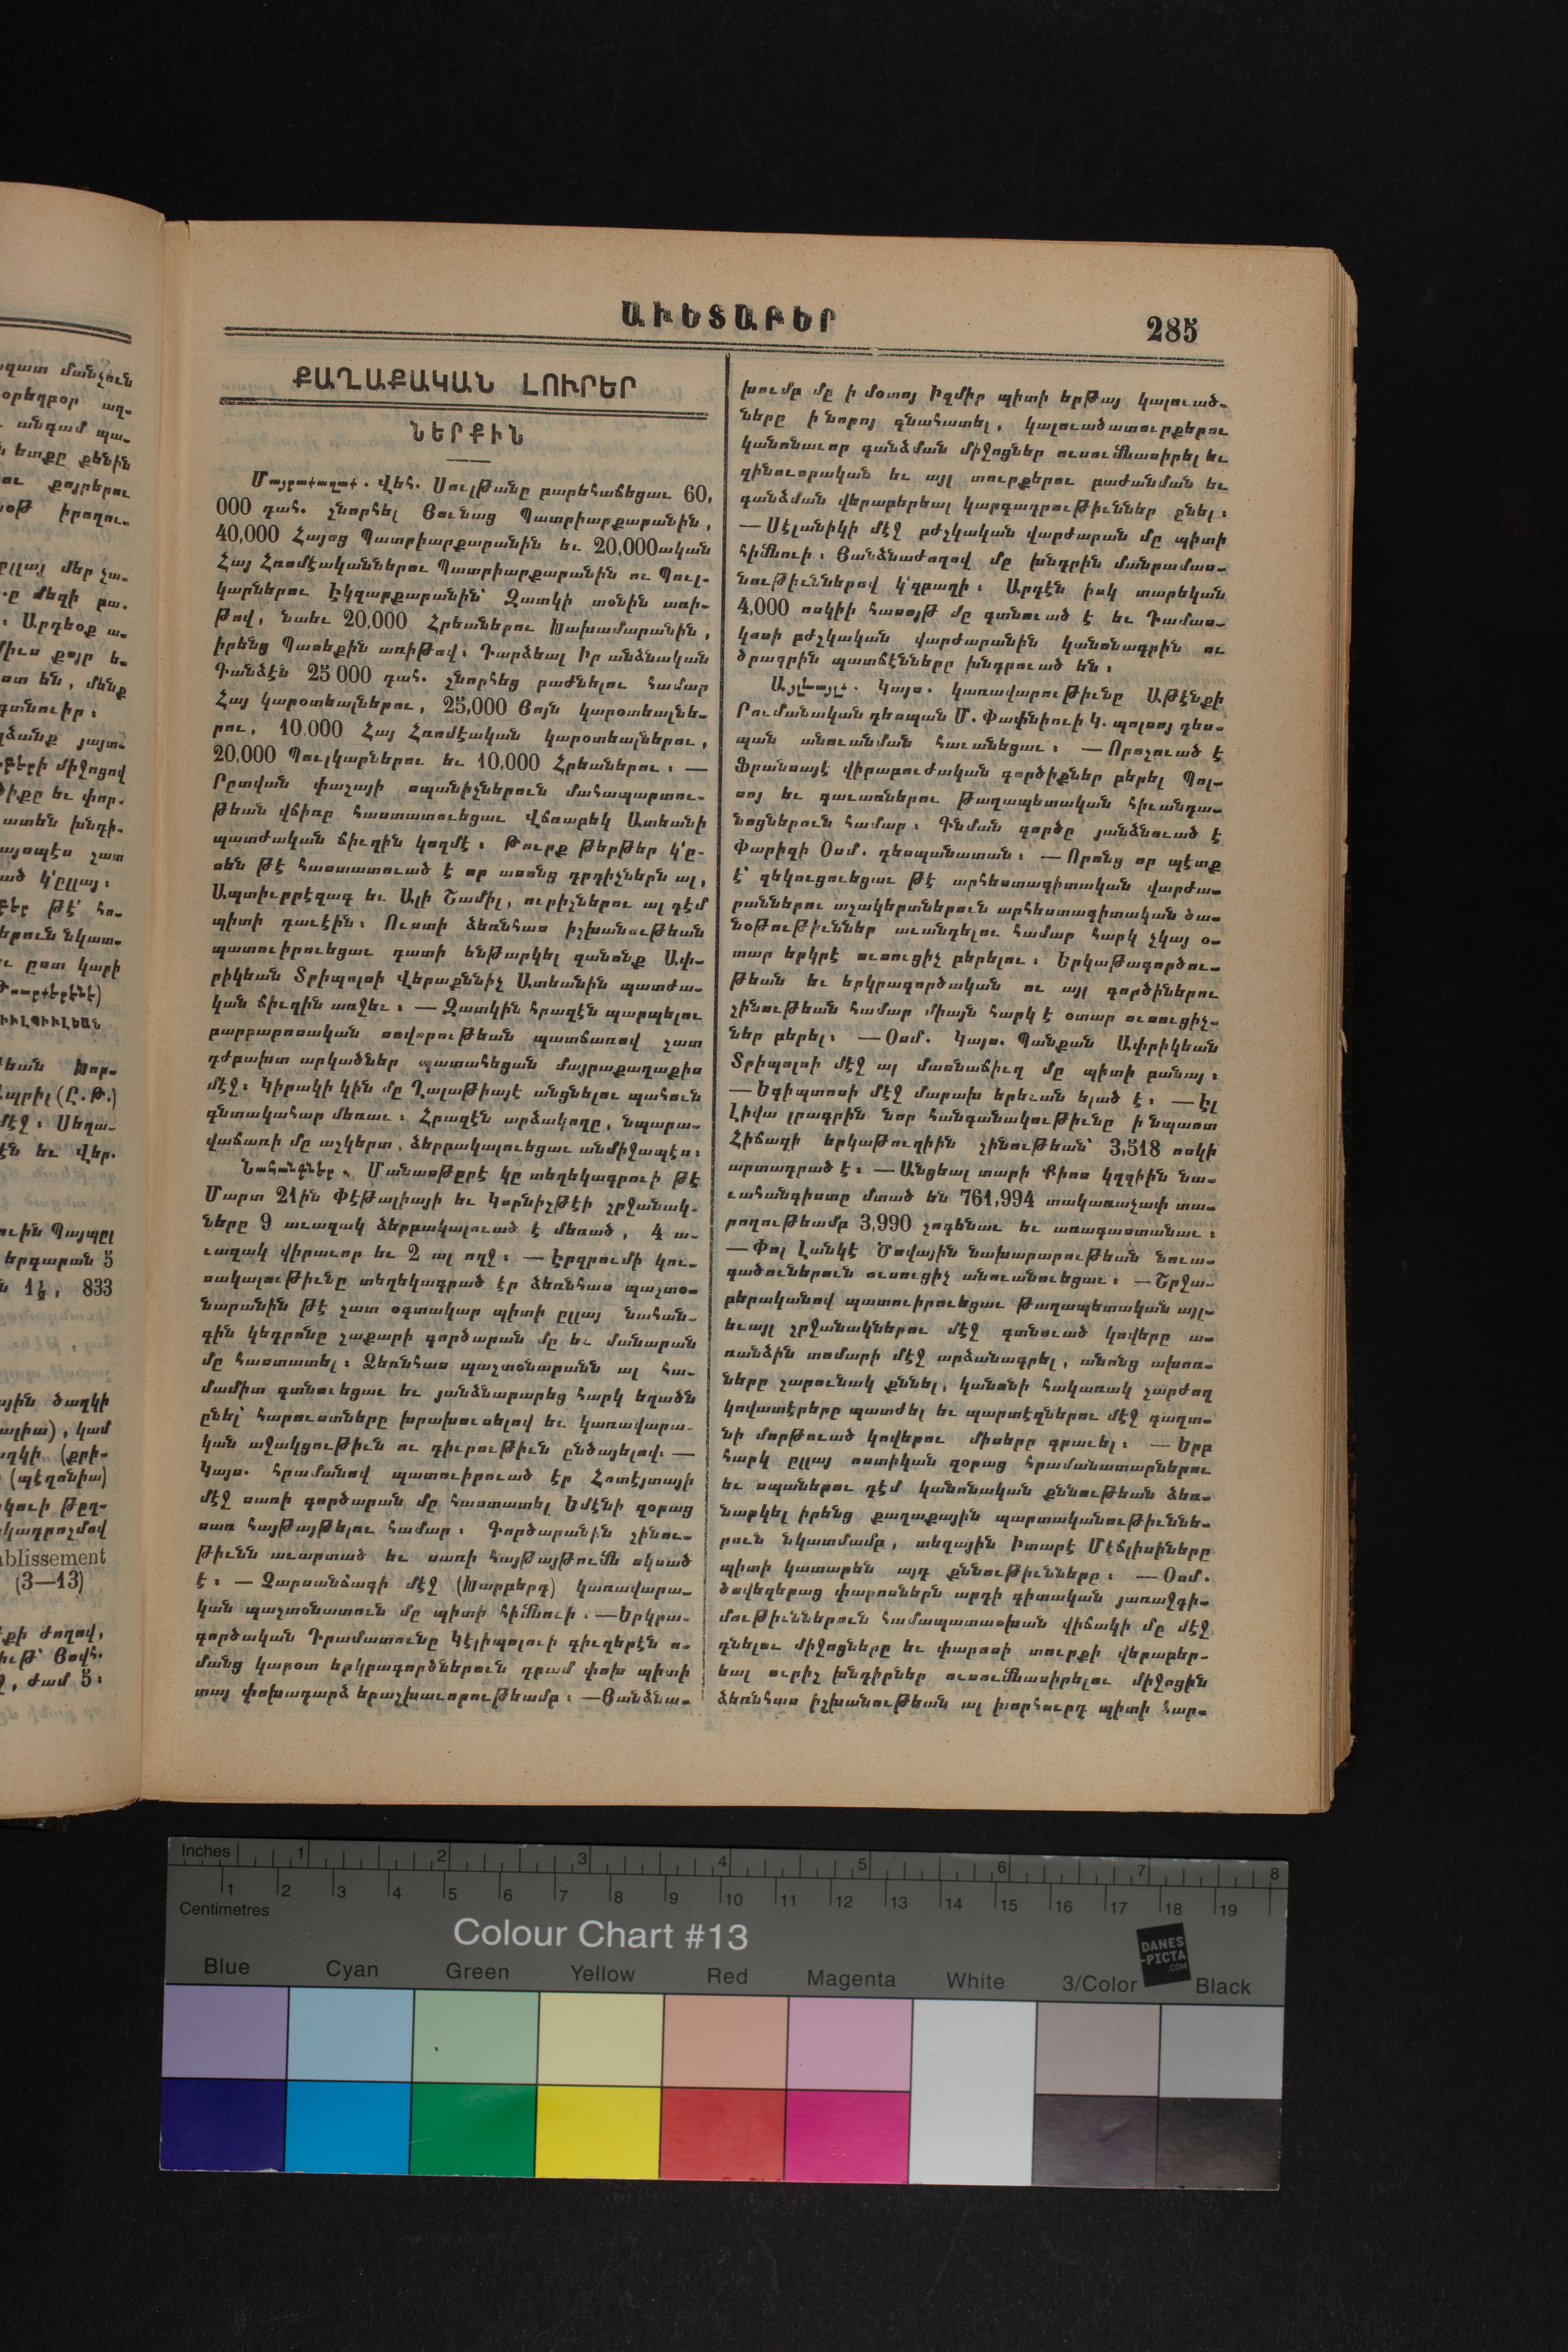 ԱՒԵՏԱԲԵՐ
285
ՔԱՂԱՔԱԿԱՆ ԼՈՒՐԵՐ
ՆԵՐՔԻՆ
Մայրաքաղաք. Վեհ. Սուլթանը բարեհաճեցաւ 60,
000 դահ. շնորհել Յունաց Պատրիարքարանին,
40,000 Հայոց Պատրիարքարանին եւ 20,000ական
Հայ Հռոմէականներու Պատրիարքարանին ու Պուլ-
կարներու Էկզարքարանին՝ Զատկի տօնին առի-
թով, նաեւ 20,000 Հրեաներու Խախամարանին,
իրենց Պասեքին առիթով։ Դարձեալ Իր անձնական
Գանձէն 25 000 դահ. շնորհեց բաժնելու համար
Հայ կարօտեալներու, 25,000 Յոյն կարօտեալնե-
րու, 10.000 Հայ Հռոմէական կարօտեալներու,
20,000 Պուլկարներու եւ 10,000 Հրեաներու։ —
Րըտվան փաշայի սպանիչներուն մահապարտու-
թեան վճիռը հաստատուեցաւ Վճռաբեկ Ատեանի
պատժական ճիւղին կողմէ։ Թուրք թերթեր կ'ը-
սեն թէ հաստատուած է որ ասոնց դրդիչներն ալ,
Ապտիւրրէզագ եւ Ալի Շամիլ, ուրիշներու ալ դէմ
պիտի դաւէին։ Ուստի ձեռնհաս իշխանութեան
պատուիրուեցաւ դատի ենթարկել զանոնք Ափ-
րիկեան Տրիպոլսի Վերաքննիչ Ատեանին պատժա-
կան ճիւղին առջեւ։ — Զատկին հրազէն պարպելու
բարբարոսական սովորութեան պատճառով շատ
դժբախտ արկածներ պատահեցան մայրաքաղաքիս
մէջ։ Կիրակի կին մը Ղալաթիայէ անցնելու պահուն
գնտակահար մեռաւ։ Հրազէն արձակողը, նպարա-
վաճառի մը աշկերտ, ձերբակալուեցաւ անմիջապէս։
Նահանգներ. Մանասթըրէ կը տեղեկագրուի թէ
Մարտ 21ին Փէթալիայի եւ Կորնիչթէի շրջանակ-
ները 9 աւազակ ձերբակալուած է մեռած, 4 ա-
ւազակ վիրաւոր եւ 2 ալ ողջ։ — Էրզրումի կու-
սակալութիւնը տեղեկագրած էր ձեռնհաս պաշտօ-
նարանին թէ շատ օգտակար պիտի ըլլայ նահան-
գին կեդրոնը շաքարի գործարան մը եւ մանարան
մը հաստատել։ Ձեռնհաս պաշտօնարանն ալ հա-
մամիտ գտնուեցաւ եւ յանձնարարեց հարկ եղածն
ընել՝ հարուստները խրախուսելով եւ կառավարա-
կան աջակցութիւն ու դիւրութիւն ընծայելով. —
Կայս. հրամանով պատուիրուած էր Հոտէյտայի
մէջ սառի գործարան մը հաստատել Եմէնի զօրաց
սառ հայթայթելու համար։ Գործարանին շինու-
թիւնն աւարտած եւ սառի հայթայթումն սկսած
է։ — Չարսանճագի մէջ (Խարբերդ) կառավարա-
կան պաշտօնատուն մը պիտի հիմնուի. — Երկրա-
գործական Դրամատունը Կէլիպոլուի գիւղերէն ո-
մանց կարօտ երկրագործներուն դրամ փոխ պիտի
տայ փոխադարձ երաշխաւորութեամբ։ —Յանձնա-
խումբ մը ի մօտոյ Իզմիր պիտի երթայ կալուած-
ները ի նորոյ գնահատել, կալուածատուրքերու
կանոնաւոր գանձման միջոցներ ուսումնասիրել եւ
զինուորական եւ այլ տուրքերու բաժանման եւ
գանձման վերաբերեալ կարգադրութիւններ ընել։
— Սէլանիկի մէջ բժշկական վարժարան մը պիտի
հիմնուի։ Յանձնաժողով մը խնդրին մանրամաս-
նութիւններով կ'զբաղի։ Արդէն իսկ տարեկան
4,000 ոսկիի հասոյթ մը գտնուած է եւ Դամաս-
կոսի բժշկական վարժարանին կանոնագրին ու
ծրագրին պատճէնները խնդրուած են։
Այլեւայլք. Կայս. կառավարութիւնը Աթէնքի
Րումանական դեսպան Մ. Փափնիուի Կ. պոլսոյ դես-
պան անուանման հաւանեցաւ։ — Որոշուած է
Ֆրանսայէ վիրաբուժական գործիքներ բերել Պոլ-
սոյ եւ գաւառներու թաղապետական հիւանդա-
նոցներուն համար։ Գնման գործը յանձնուած է
Փարիզի Օսմ. դեսպանատան։ — Որոնց որ պէտք
է՝ զեկուցուեցաւ թէ արհեստագիտական վարժա-
րաններու աշակերտներուն արհեստագիտական ծա-
նօթութիւններ աւանդելու համար հարկ չկայ օ-
տար երկրէ ուսուցիչ բերելու։ Երկաթագործու-
թեան եւ երկրագործական ու այլ գործիներու
շինութեան համար միայն հարկ է օտար ուսուցիչ-
ներ բերել։ — Օսմ. Կայս. Պանքան Ափրիկեան
Տրիպոլսի մէջ ալ մասնաճիւղ մը պիտի բանայ։
— Եգիպտոսի մէջ մարախ երեւան ելած է։ — Էլ
Լիվա լրագրին նոր հանգանակութիւնը ի նպաստ
Հիճազի երկաթուղիին շինութեան՝ 3,518 ոսկի
արտադրած է։ — Անցեալ տարի Քիոս կղզիին նա-
ւահանգիստը մտած են 761,994 տակառաչափ տա-
րողութեամբ 3,990 շոգենաւ եւ առագաստանաւ։
— Փոլ Լանկէ Ծովային նախարարութեան նուա-
գածուներուն ուսուցիչ անուանուեցաւ։ — Շրջա-
բերականով պատուիրուեցաւ թաղապետական այլ-
եւայլ շրջանակներու մէջ գտնուած կովերը ա-
ռանձին տոմարի մէջ արձանագրել, անոնց ախոռ-
ները շարունակ քննել, կանոնի հակառակ շարժող
կովատէրերը պատժել եւ պարտէզներու մէջ գաղտ-
նի մորթուած կովերու միսերը գրաւել։ — Երբ
հարկ ըլլայ ոստիկան զօրաց հրամանատարներու
եւ սպաներու դէմ կանոնական քննութեան ձեռ-
նարկել իրենց քաղաքային պարտականութիւննե-
րուն նկատմամբ, տեղային Իտարէ Մէճլիսիները
պիտի կատարեն այդ քննութիւնները։ — Օսմ.
ծովեզերաց փարոսներն արդի գիտական յառաջդի-
մութիւններուն համապատասխան վիճակի մը մէջ
դնելու միջոցները եւ փարոսի տուրքի վերաբեր-
եալ ուրիշ խնդիրներ ուսումնասիրելու միջոցին
ձեռնհաս իշխանութեան ալ խորհուրդ պիտի հար-
Inches 1 2 3 4 5 6 7 8
1 2 3 4 5 6 7 8 9 10 11 12 13 14 15 16 17 18 19
Centimetres
Colour Chart #13
DANES
-PICTA
.COM
Blue Cyan Green Yellow Red Magenta White 3/Color Black